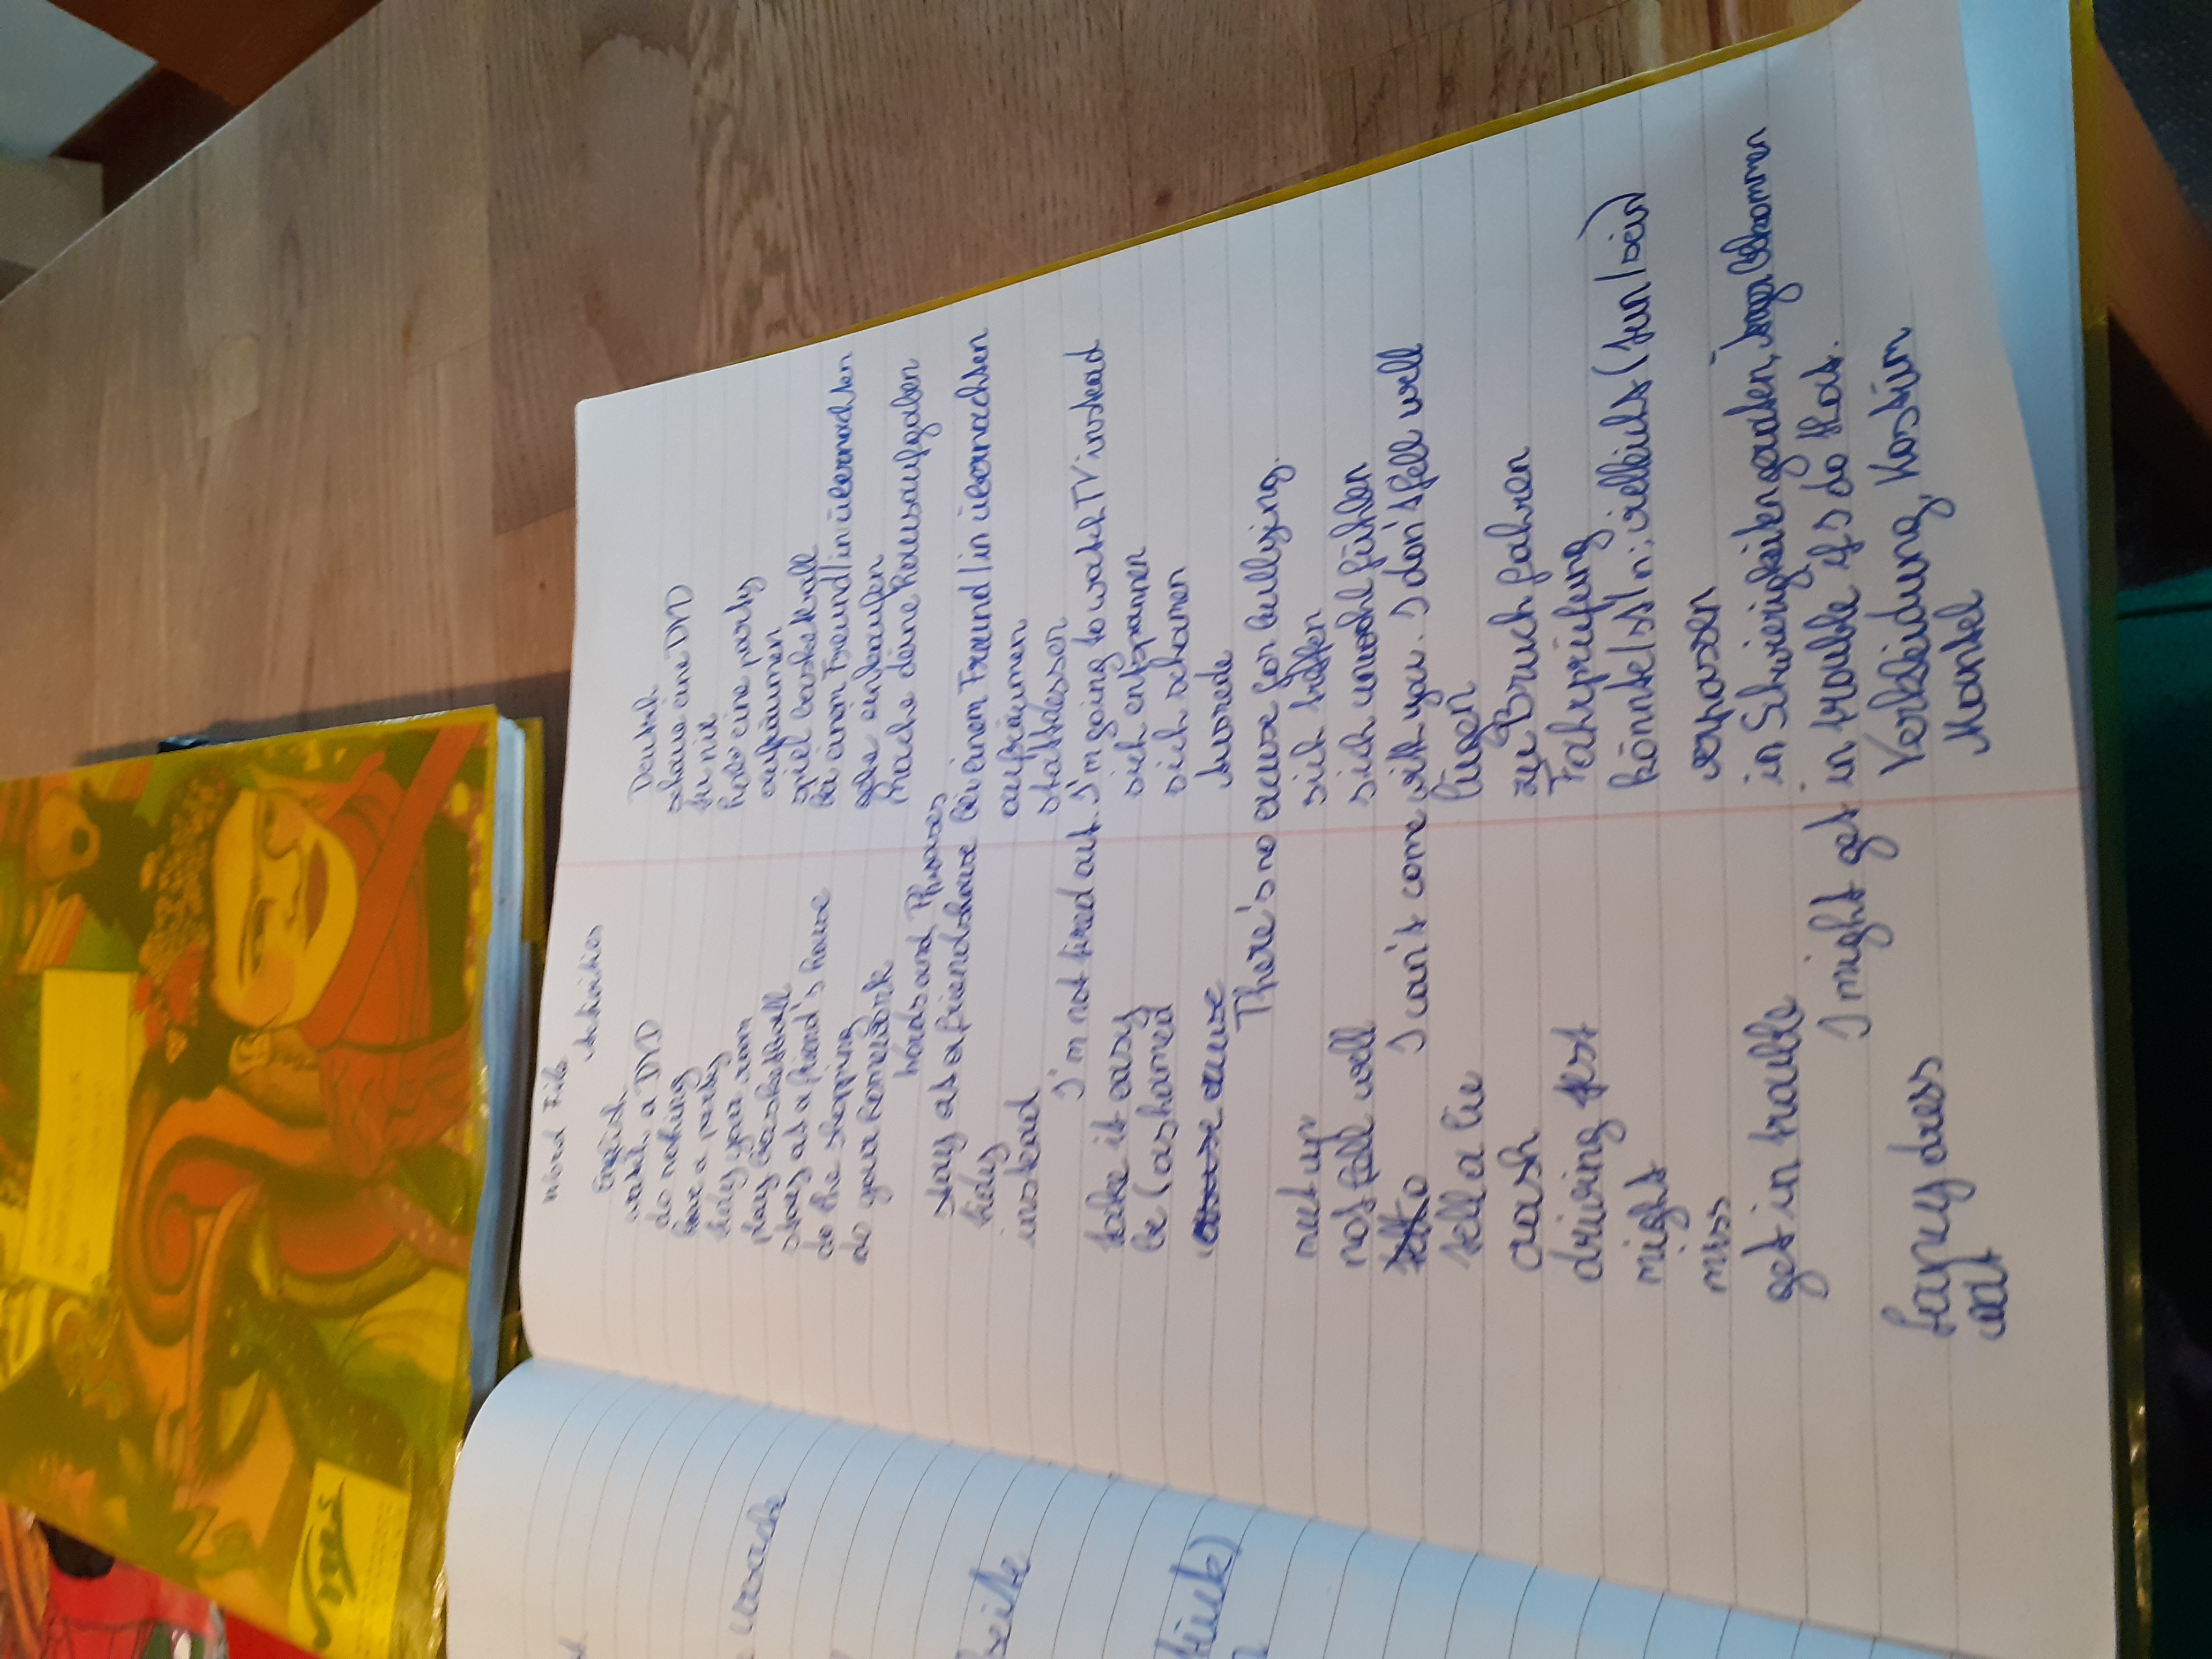 Word File
Activities
English Deutsch
watch a DVD schaue eine DVD
do nothing tu nix
have a party habe eine party
tidy your room aufräumen
play basketball spiel basketball
stay at a friend's house bei einem Freund/in übernachten
do the shopping gehe einkaufen
do your homework mache deine hausaufgaben
Words and Phrases
stay at a friends house bei einem Freund/in übernachten
tidy aufräumen
instead stattdessen
I'm not tired out. I'm going to watch TV instead
take it easy sich entspannen
be (ashamed sich schämen
excuse Ausrede
There's no excuse for bullying.
meet up sich treffen
not fell well sich unwohl fühlen
I can't come with you. I don't fell well
tell a lie lügen
crash zu Bruch fahren
driving test Fahrprüfung
might könnte/st/n; vielleicht (tun/sein)
miss verpassen
get in trouble in Schwierigkeiten geraten, bekommen
I might get in trouble if I do that.
fancy dress Verkleidung, Kostüm
coat Mantel